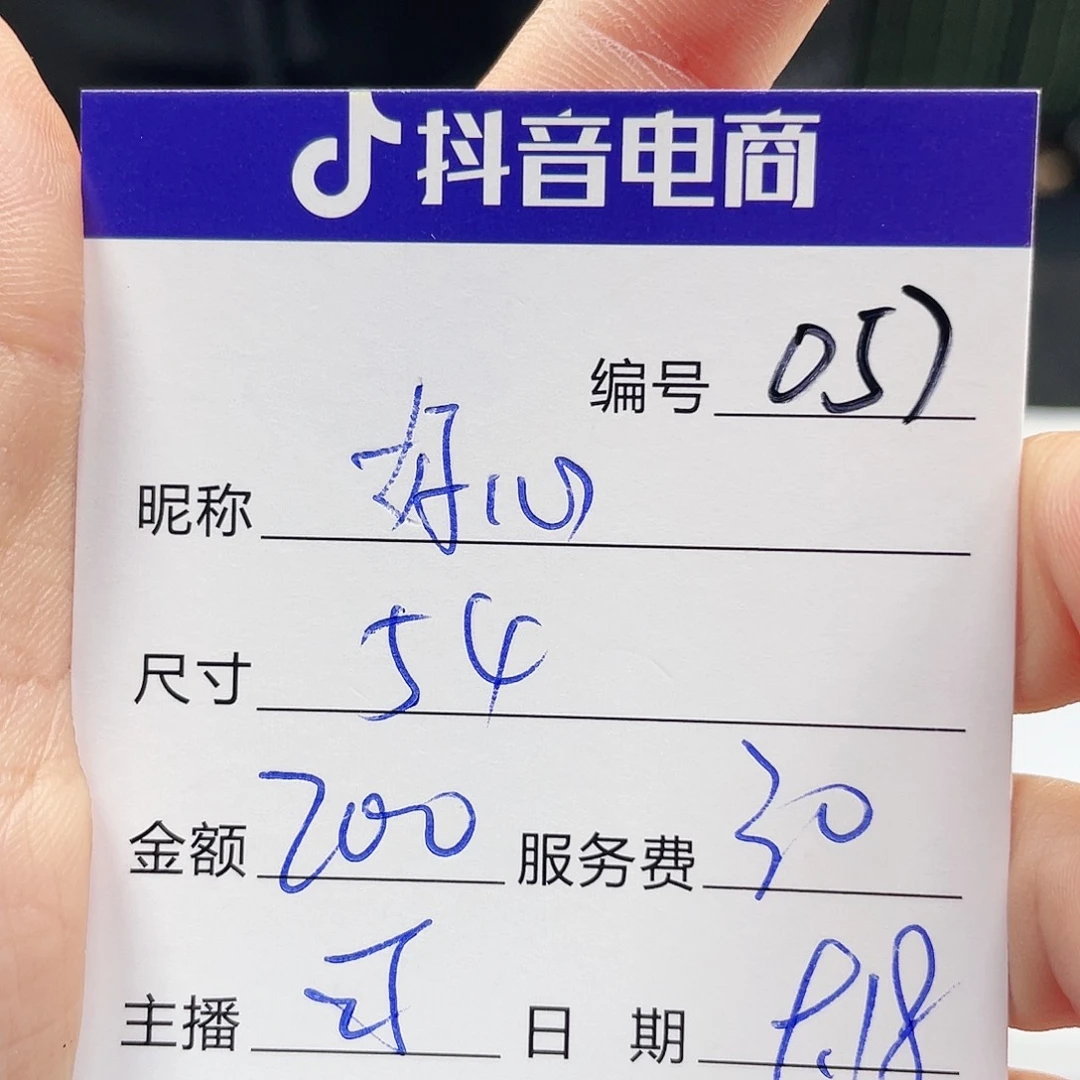 抖音电商
编号 057
昵称 好心
尺寸 54
金额 200 服务费 30
主播 日期 9.18